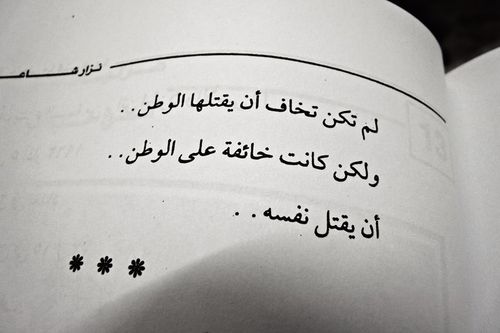 نزار شاعـ
لم تكن تخاف أن يقتلها الوطن..
ولكن كانت خائفة على الوطن..
أن يقتل نفسه..
* * *